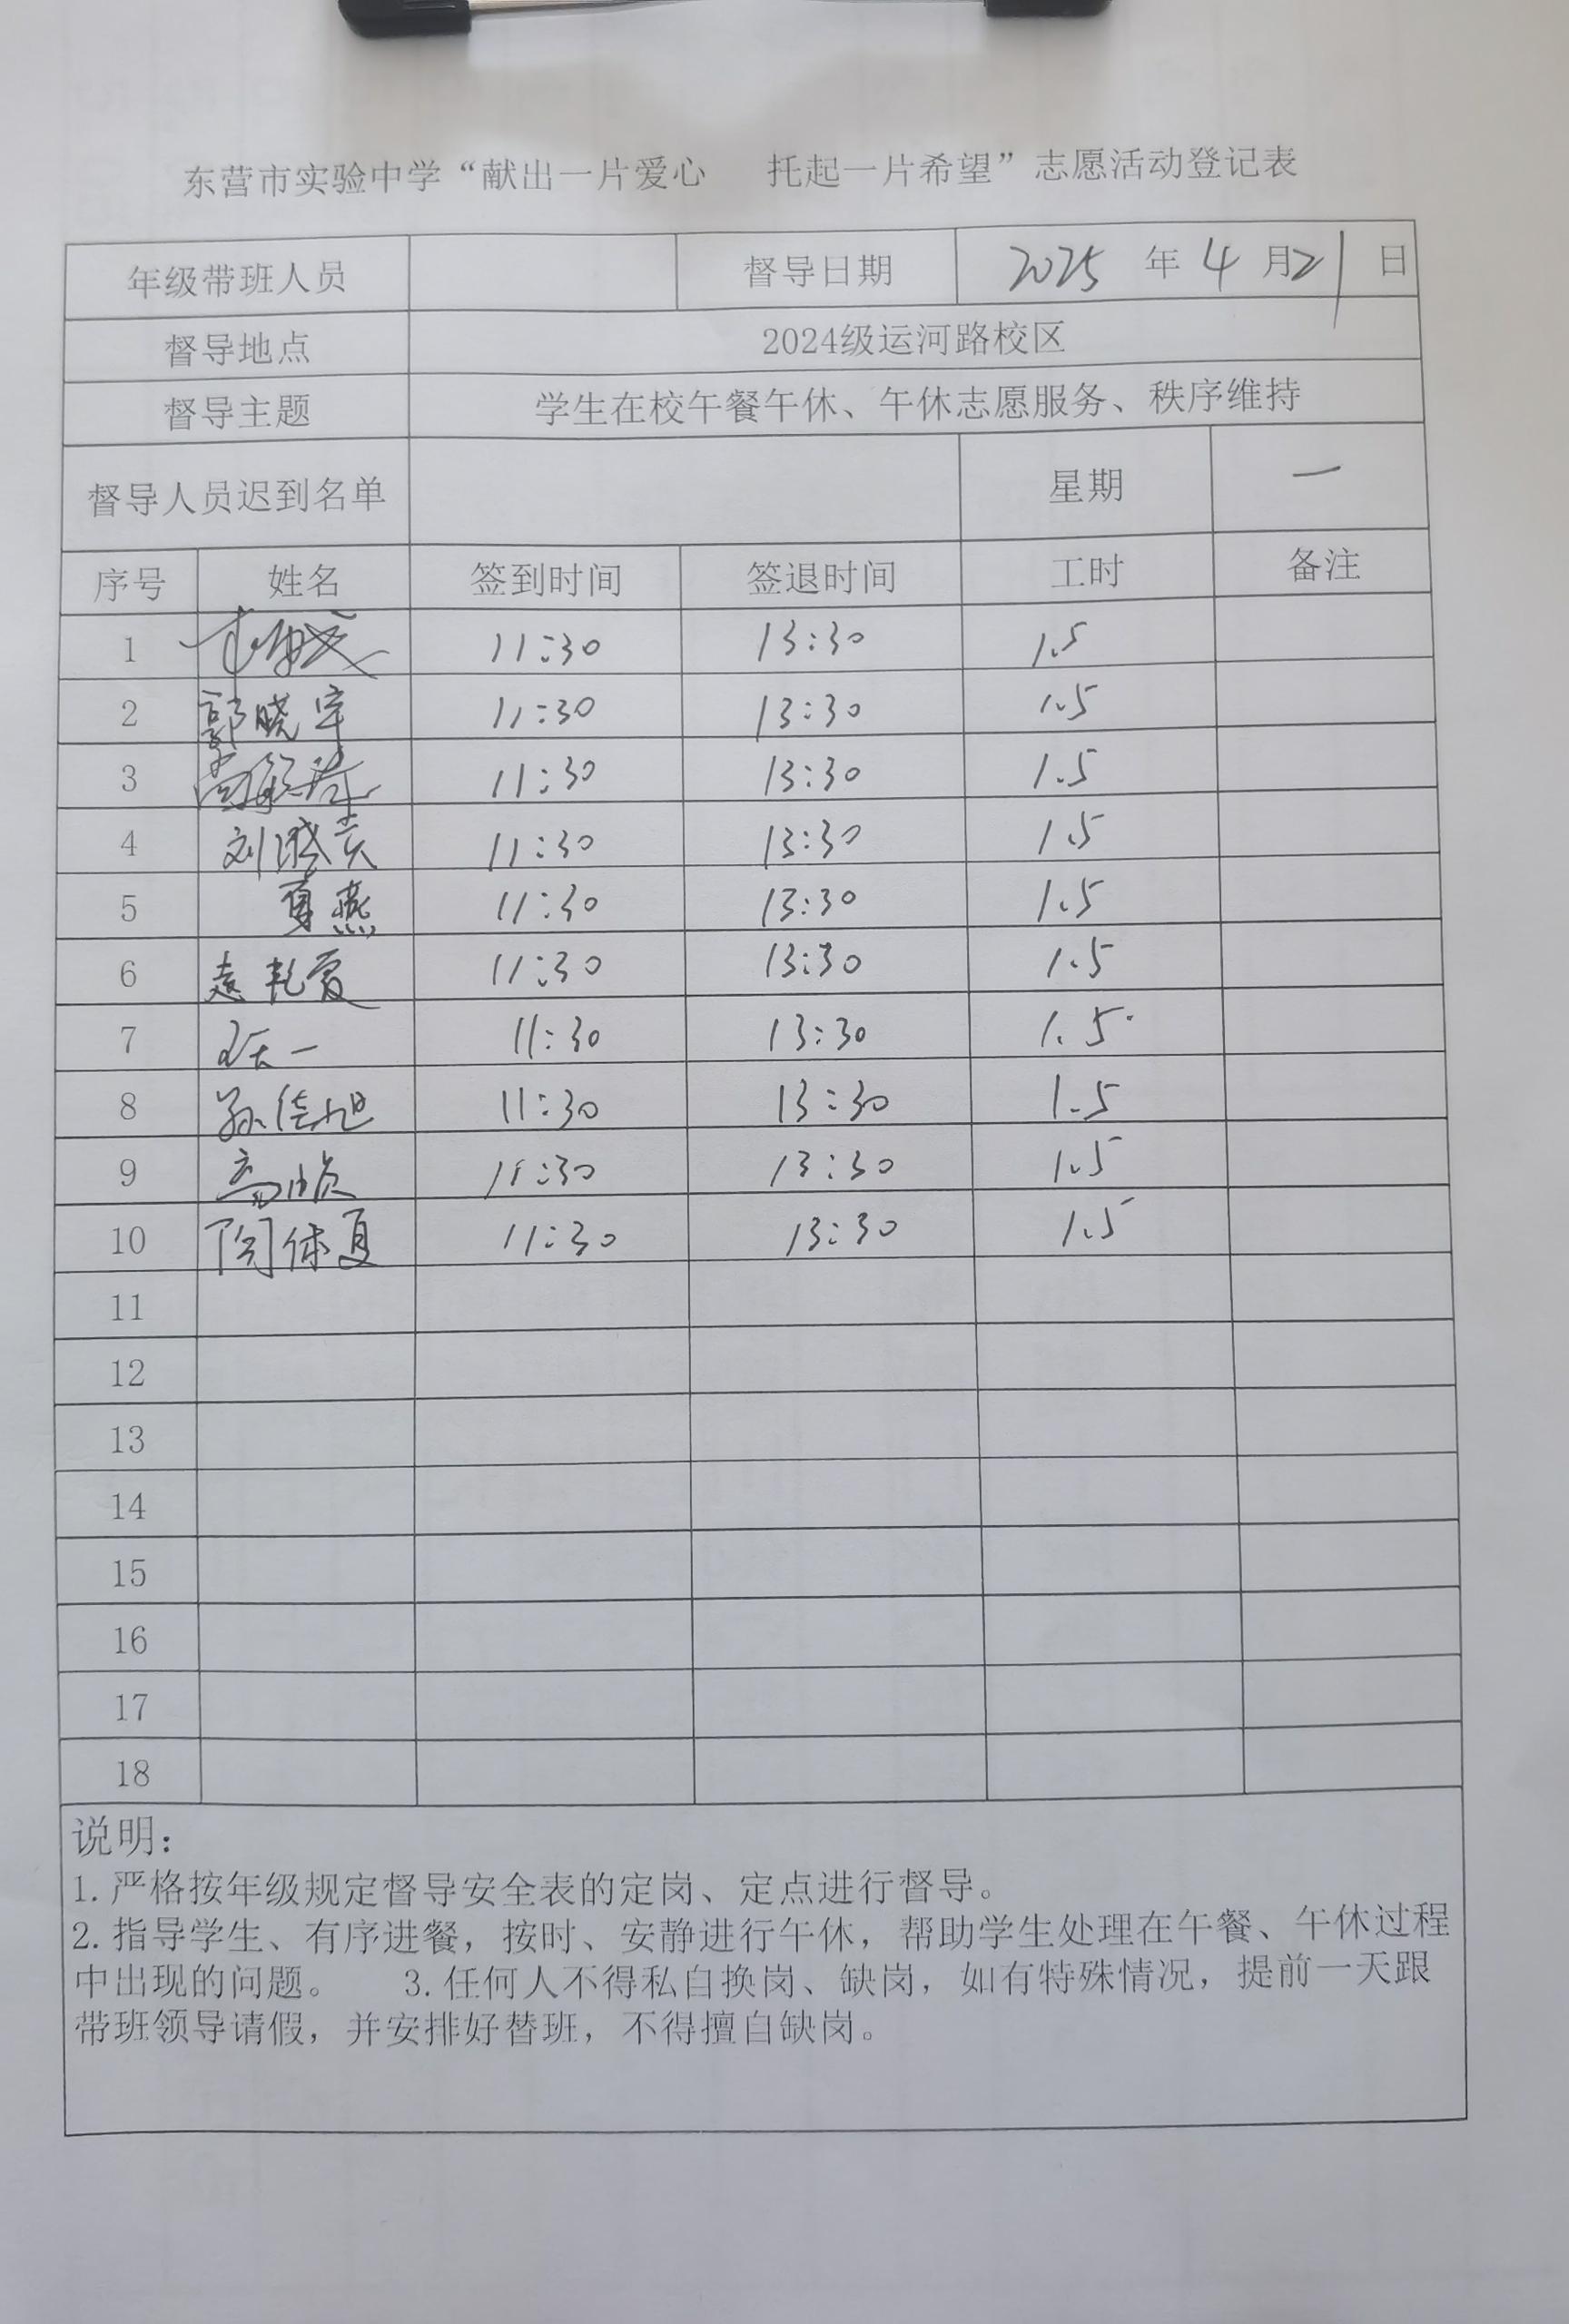 东营市实验中学“献出一片爱心 托起一片希望”志愿活动登记表
年级带班人员 督导日期 2025 年 4 月 21 日
督导地点 2024级运河路校区
督导主题 学生在校午餐午休、午休志愿服务、秩序维持
督导人员迟到名单 星期 一
序号 姓名 签到时间 签退时间 工时 备注
1 11:30 13:30 1.5
2 郭晓宇 11:30 13:30 1.5
3 11:30 13:30 1.5
4 刘 11:30 13:30 1.5
5 夏燕 11:30 13:30 1.5
6 袁艳霞 11:30 13:30 1.5
7 11:30 13:30 1.5
8 孙佳旭 11:30 13:30 1.5
9 高 11:30 13:30 1.5
10 11:30 13:30 1.5
11
12
13
14
15
16
17
18
说明：
1. 严格按年级规定督导安全表的定岗、定点进行督导。
2. 指导学生、有序进餐，按时、安静进行午休，帮助学生处理在午餐、午休过程
中出现的问题。 3. 任何人不得私自换岗、缺岗，如有特殊情况，提前一天跟
带班领导请假，并安排好替班，不得擅自缺岗。